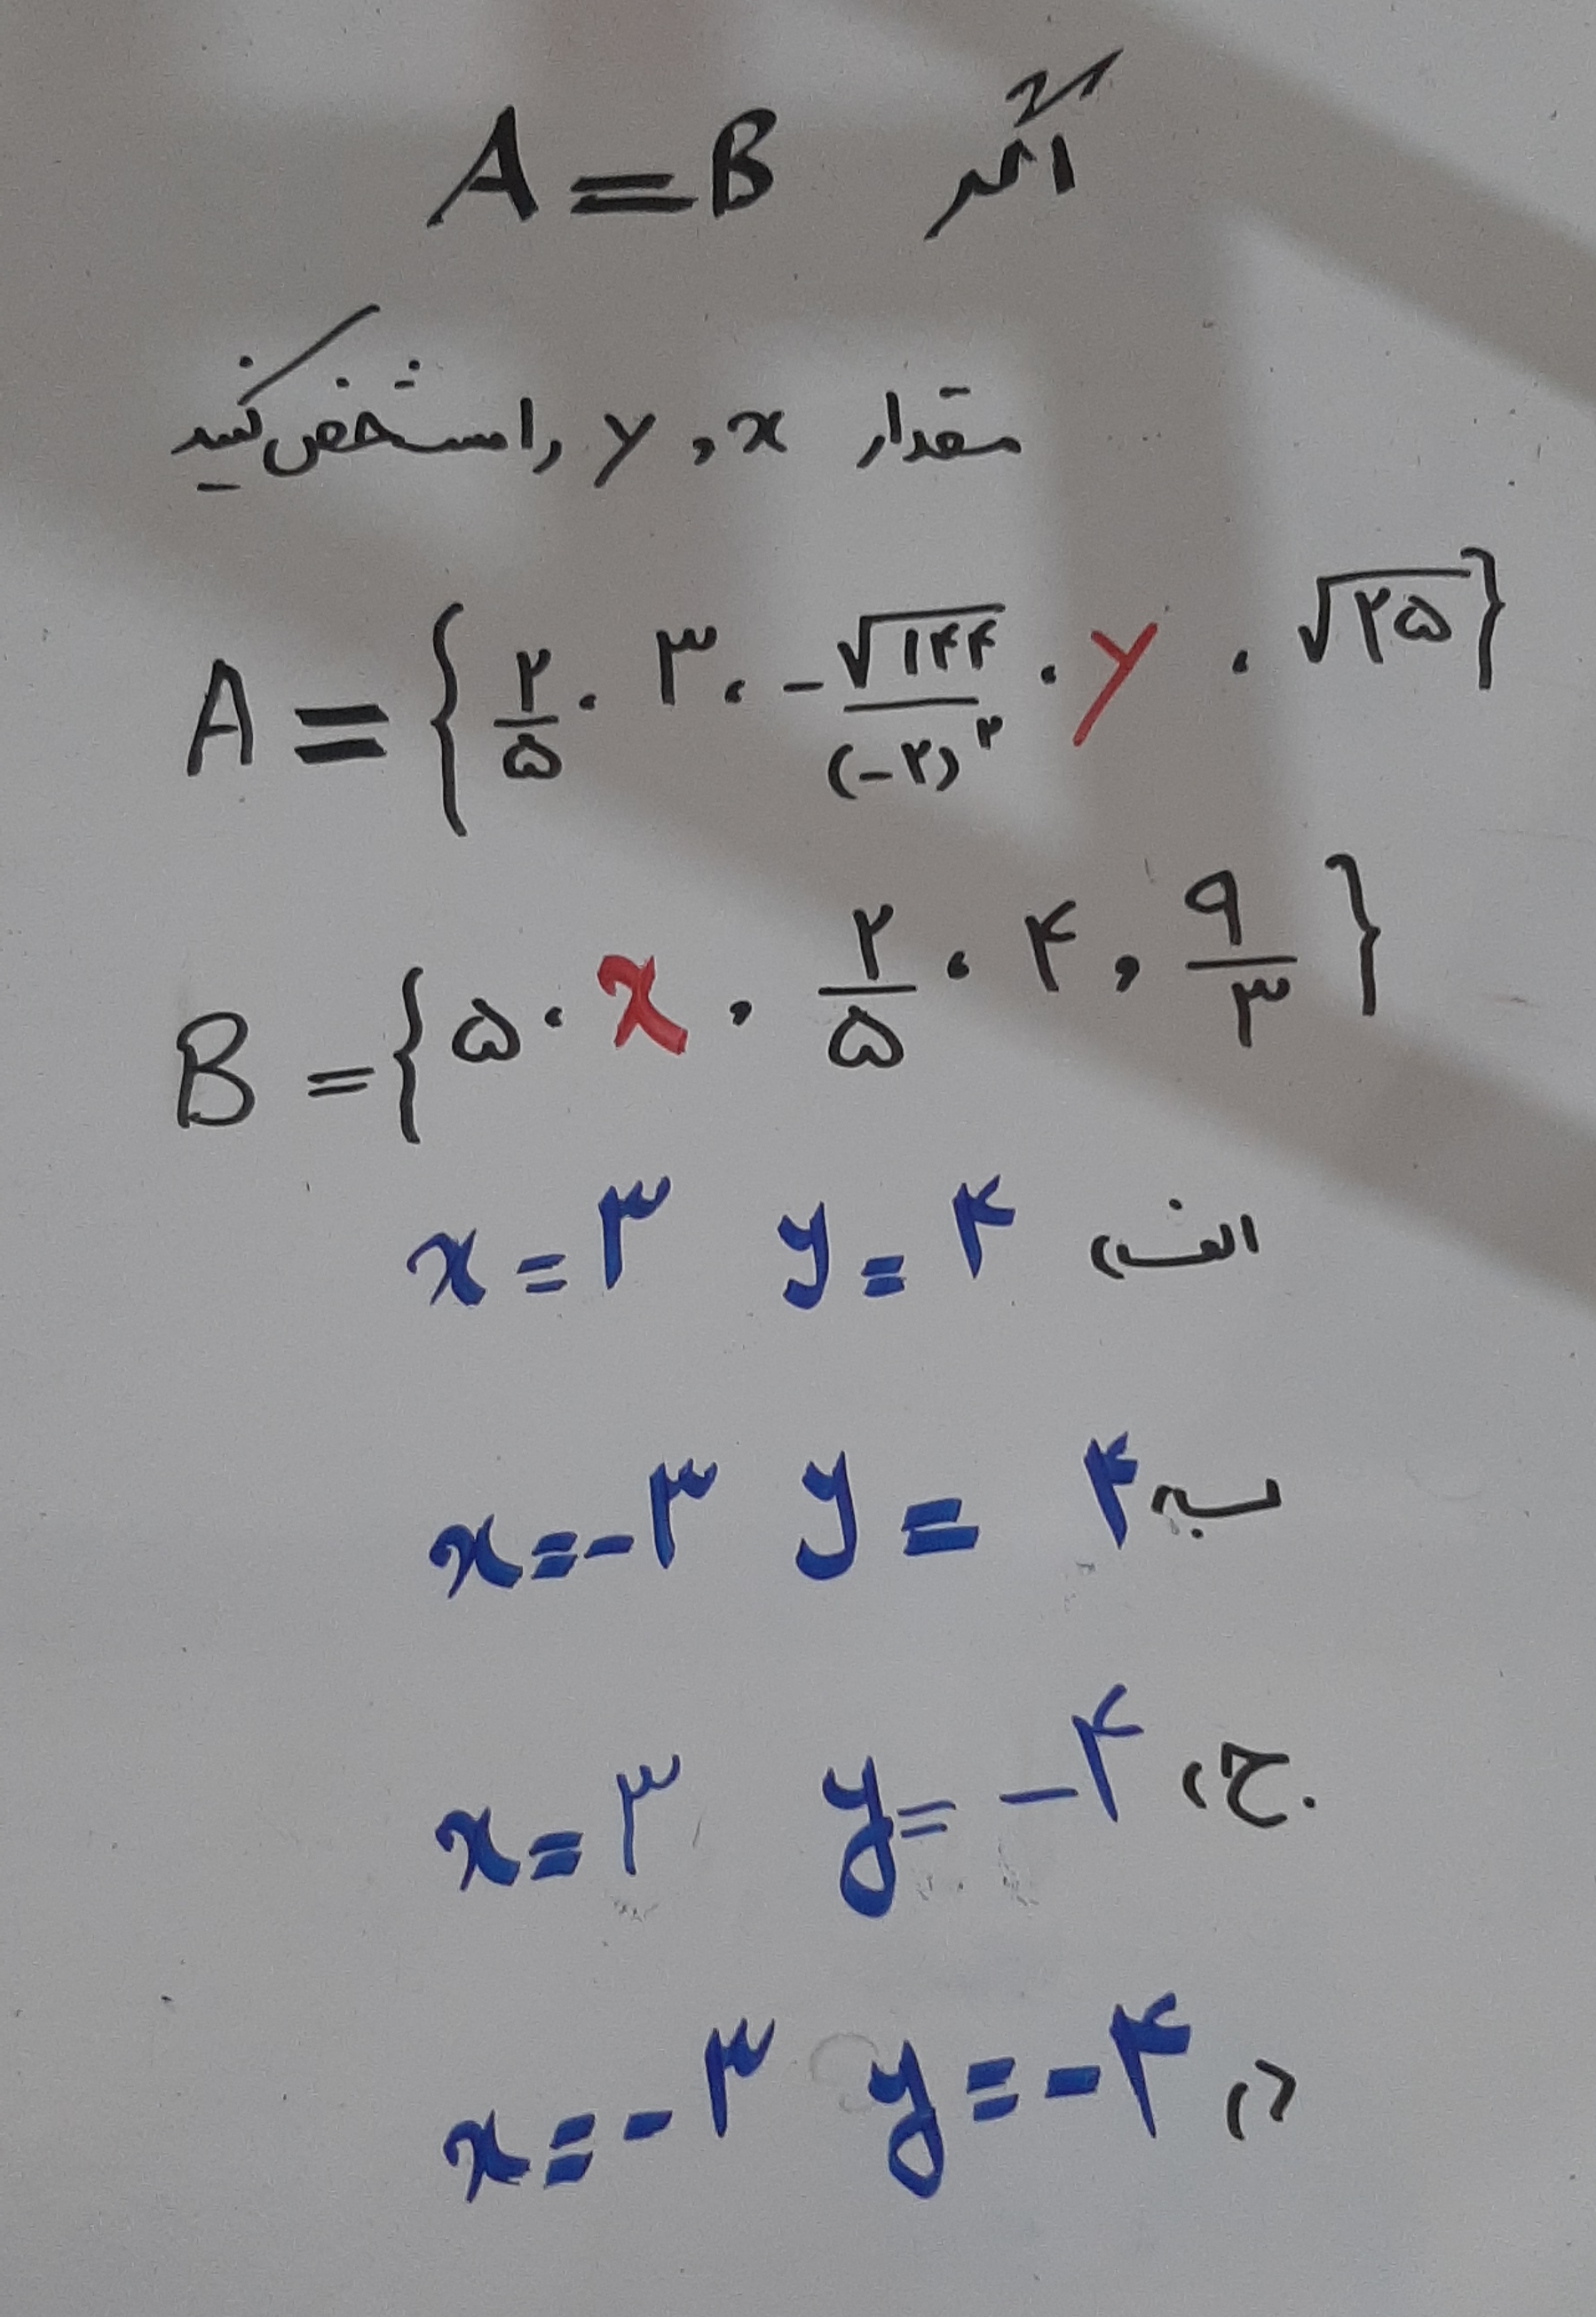 اگر A = B
مقدار x , y را مشخص کنید
A = { ۲/۵ , ۳ , -√۱۴۴/(-۲)^۲ , y , √۲۵ }
B = { ۵ , x , ۲/۵ , ۴ , ۹/۳ }
الف) x = ۳ y = ۴
ب) x = -۳ y = ۴
ج) x = ۳ y = -۴
د) x = -۳ y = -۴